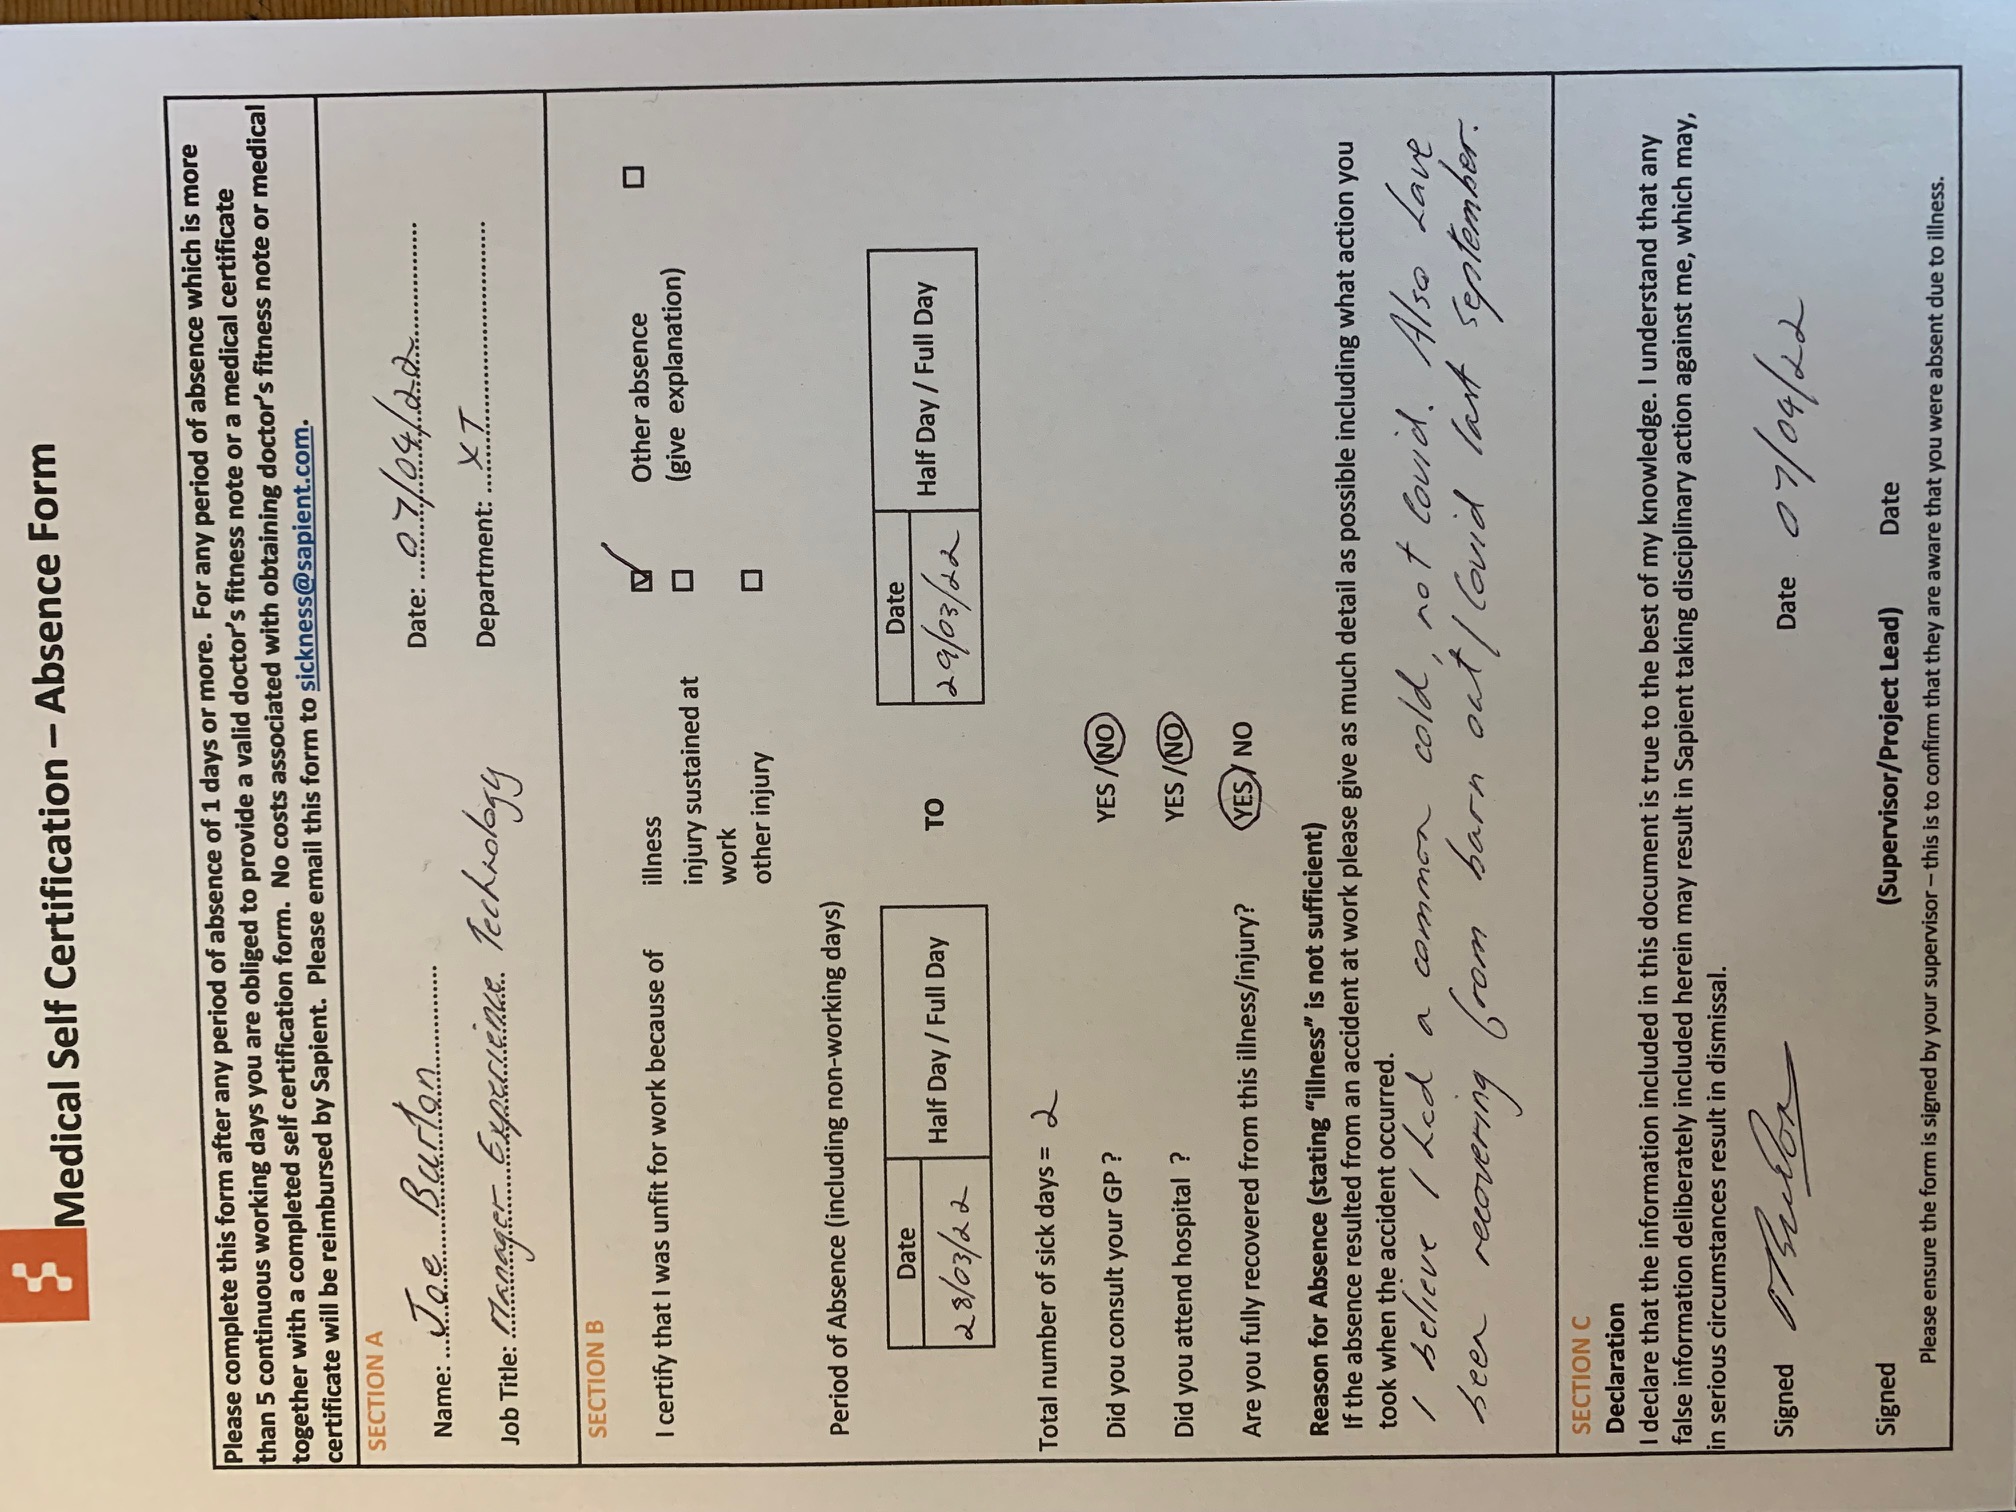 Medical Self Certification – Absence Form
Please complete this form after any period of absence of 1 days or more. For any period of absence which is more
than 5 continuous working days you are obliged to provide a valid doctor's fitness note or a medical certificate
together with a completed self certification form. No costs associated with obtaining doctor's fitness note or medical
certificate will be reimbursed by Sapient. Please email this form to sickness@sapient.com.
SECTION A
Name: Joe Burton Date: 07/04/22
Job Title: Manager Experience Technology Department: XT
SECTION B
I certify that I was unfit for work because of illness Other absence
(give explanation)
injury sustained at
work
other injury
Period of Absence (including non-working days)
Date Half Day / Full Day TO Date Half Day / Full Day
28/03/22 29/03/22
Total number of sick days = 2
Did you consult your GP ? YES / NO
Did you attend hospital ? YES / NO
Are you fully recovered from this illness/injury? YES / NO
Reason for Absence (stating "illness" is not sufficient)
If the absence resulted from an accident at work please give as much detail as possible including what action you
took when the accident occurred.
I believe I had a common cold, not Covid. Also have
been recovering from burn out / Covid last September.
SECTION C
Declaration
I declare that the information included in this document is true to the best of my knowledge. I understand that any
false information deliberately included herein may result in Sapient taking disciplinary action against me, which may,
in serious circumstances result in dismissal.
Signed JBurton Date 07/04/22
Signed (Supervisor/Project Lead) Date
Please ensure the form is signed by your supervisor – this is to confirm that they are aware that you were absent due to illness.